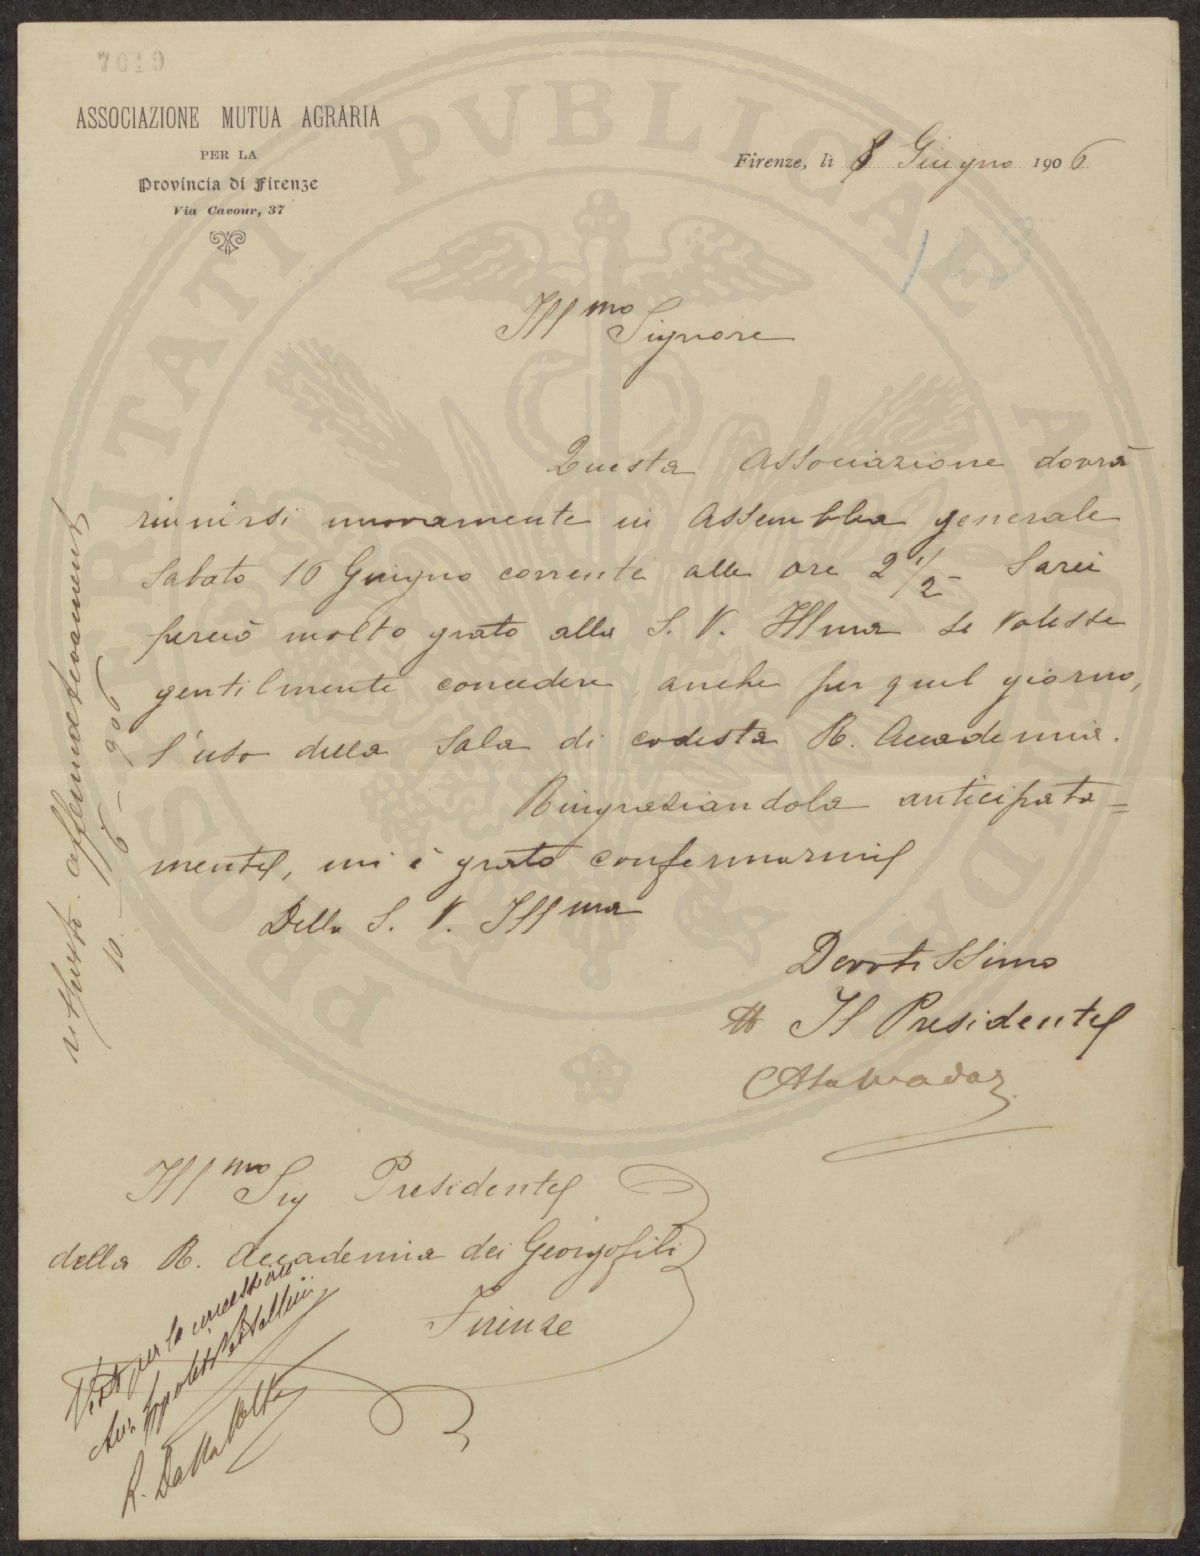 7019
ASSOCIAZIONE MUTUA AGRARIA
PER LA
Provincia di Firenze
Via Cavour, 37
Firenze, lì 8 Giugno 1906
Ill mo Signore
Questa Associazione dovrà
riunirsi nuovamente in Assemblea generale
Sabato 16 Giugno corrente alle ore 2 1/2 - Sarei
perciò molto grato alla S. V. Illma se volesse
gentilmente concedere anche per quel giorno,
l'uso della Sala di codesta R. Accademia.
Ringraziandola anticipata=
mente, mi è grato confermarmi
Della S. V. Ill ma
Devotissimo
Il Presidente
Ill mo Sig Presidente
della R. Accademia dei Georgofili
Firenze
risposto affermativamente
10 - 6 - 906
Visto per la concessione
Ippolito Pestellini
R. Dalla Volta
PROSPERITATI PVBLICAE AVGENDAE